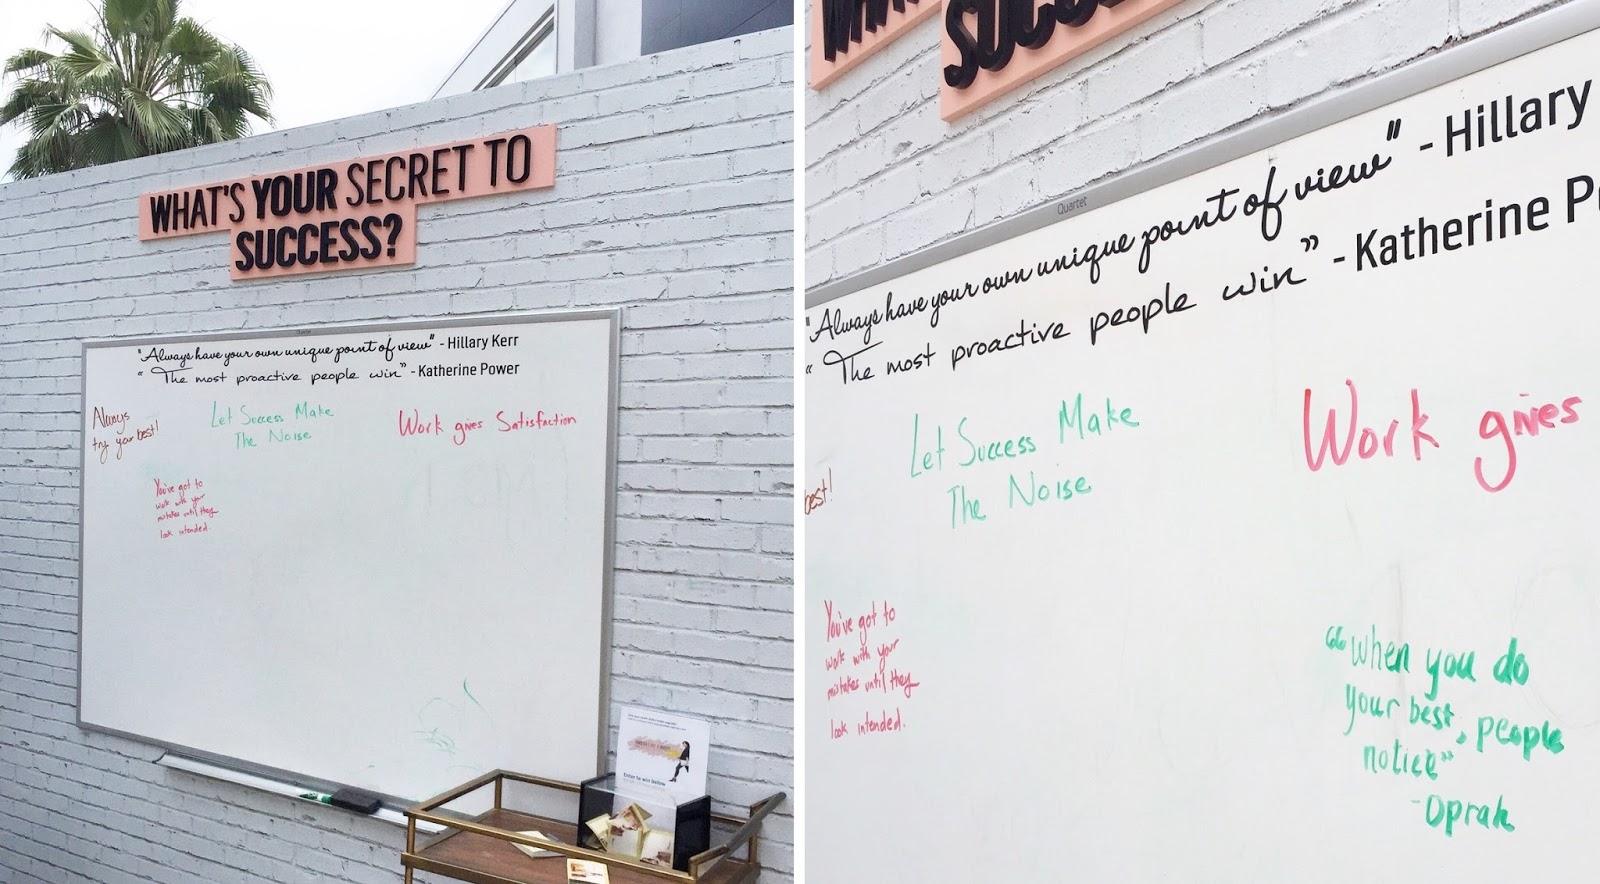 WHAT'S YOUR SECRET TO
SUCCESS?
Quartet
"Always have your own unique point of view" - Hillary Kerr
" The most proactive people win" - Katherine Power
Always
try your best!
Let Success Make
The Noise
Work gives Satisfaction
You've got to
work with your
mistakes until they
look intended.
Enter to win below
SUCCESS
Quartet
"Always have your own unique point of view" - Hillary
" The most proactive people win" - Katherine P
best!
Let Success Make
The Noise
Work gives
You've got to
work with your
mistakes until they
look intended.
"when you do
your best, people
notice"
-Oprah